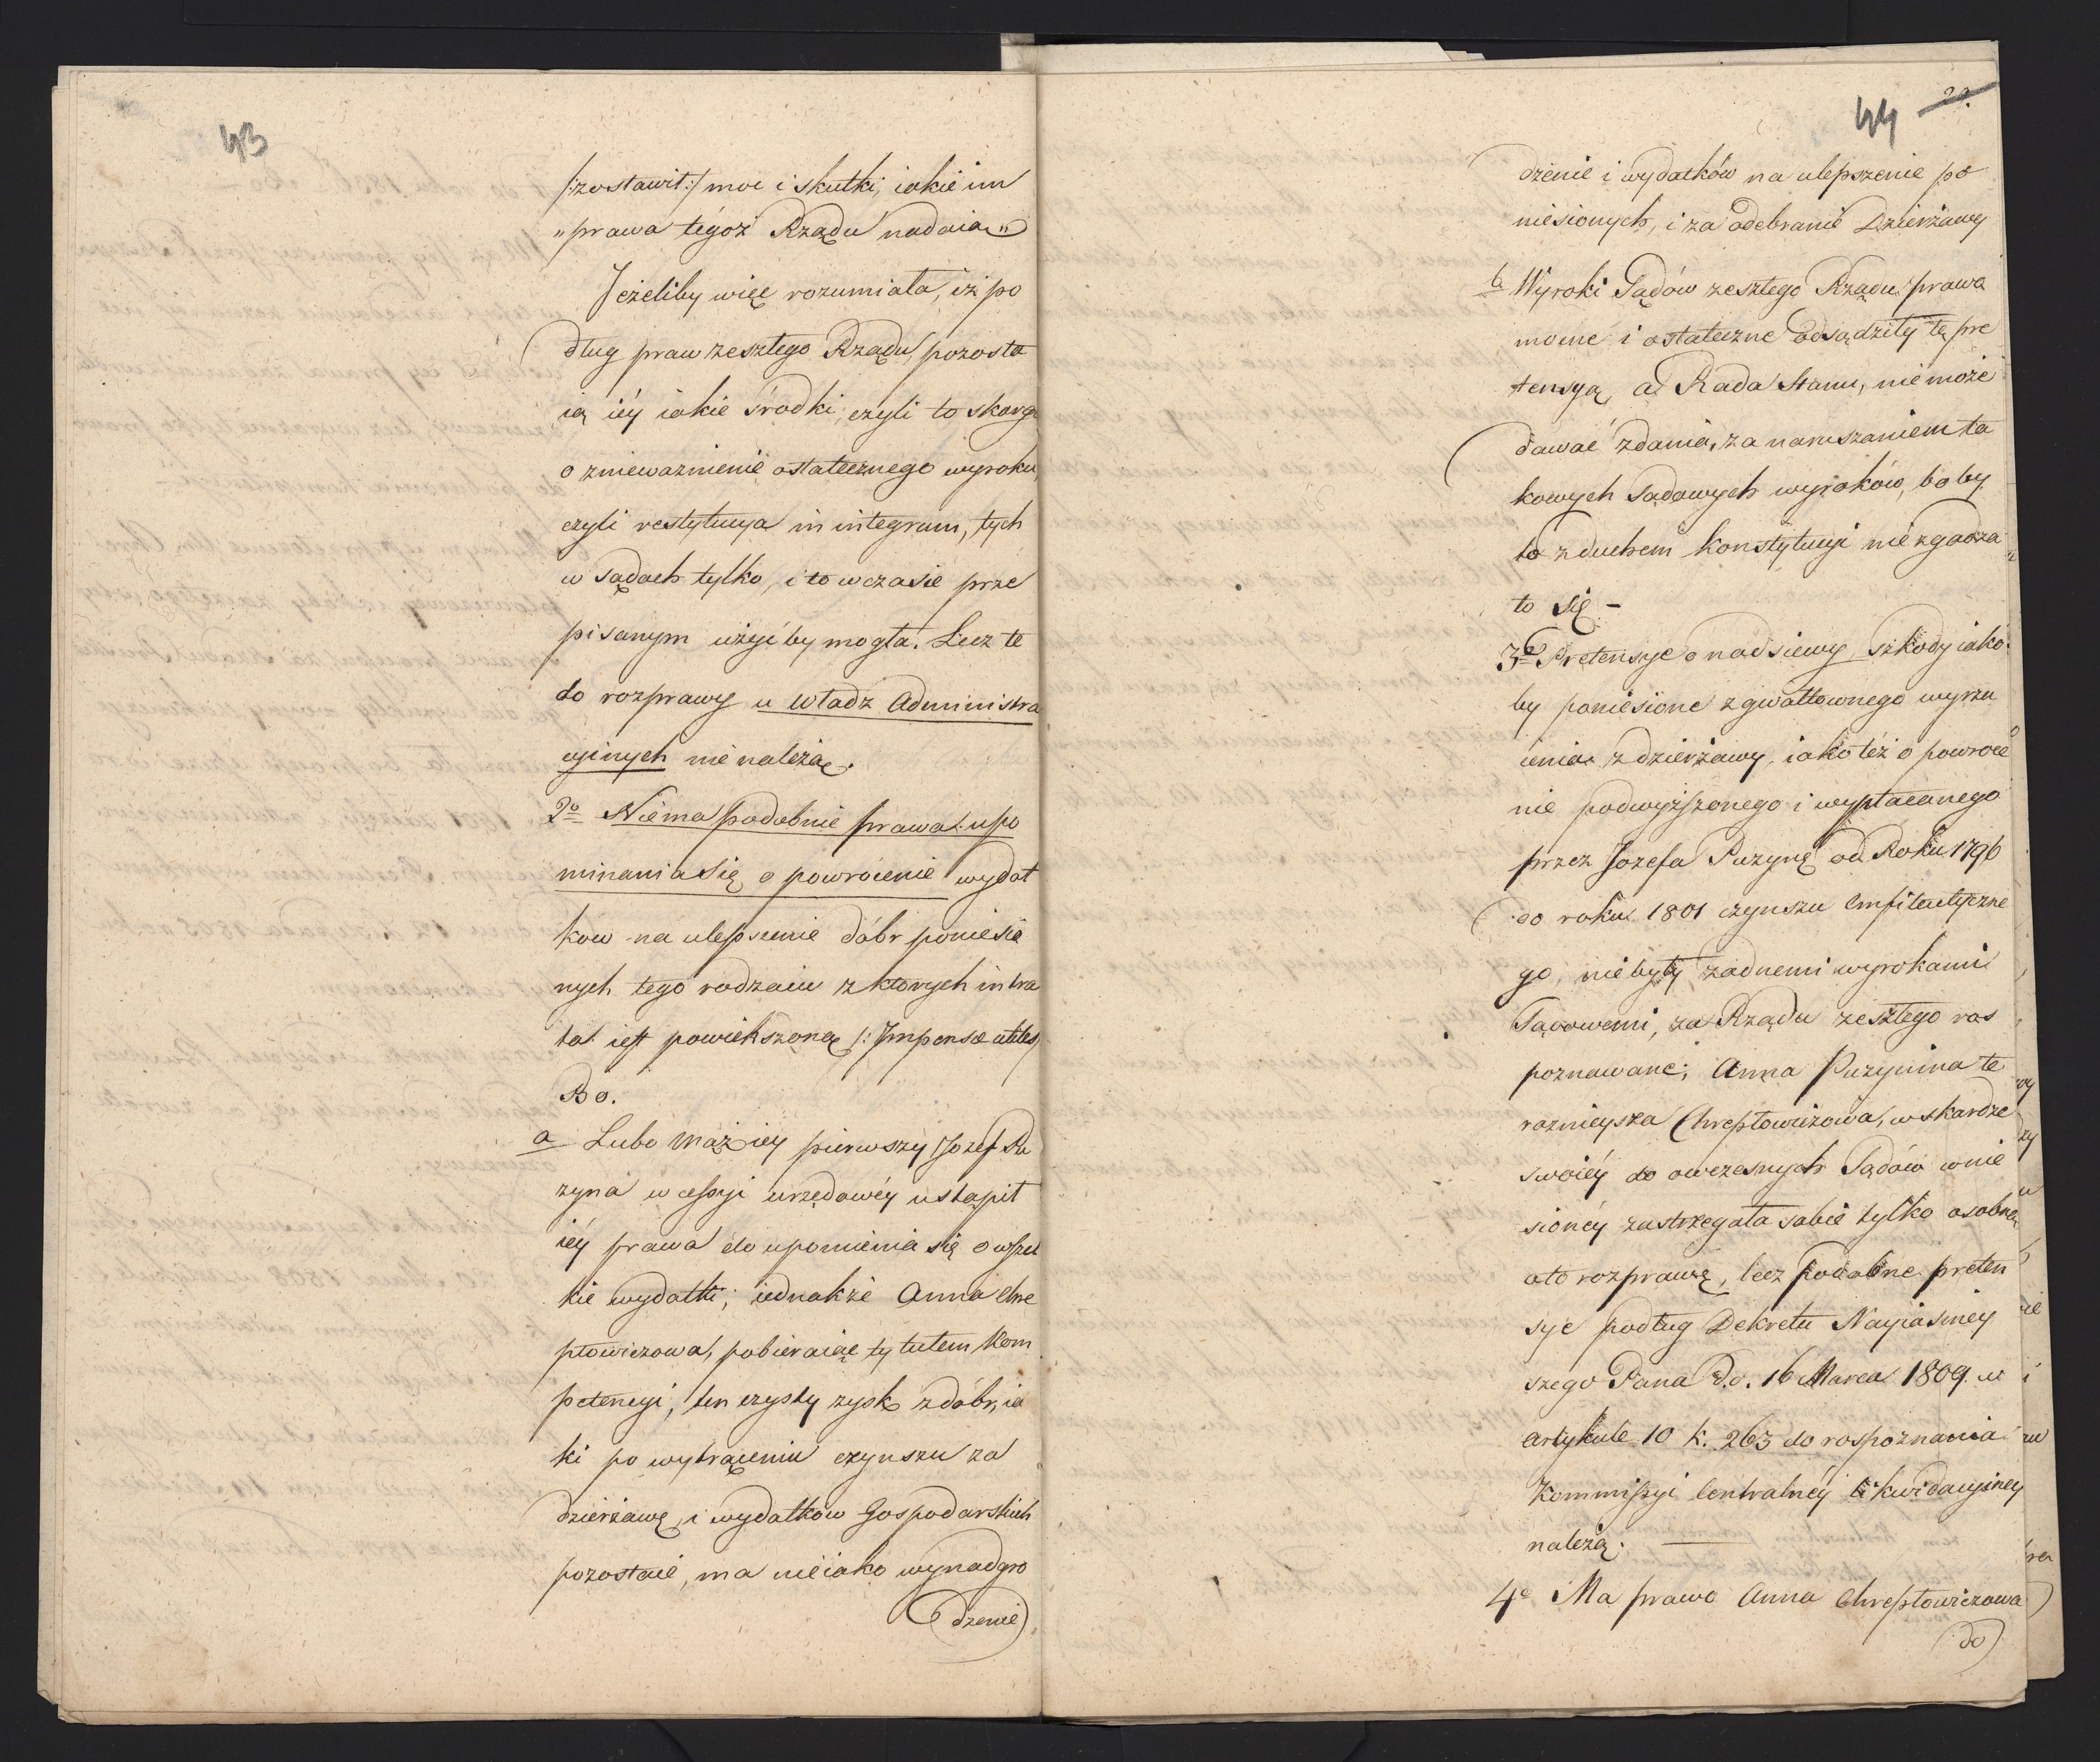 43
/:zostawił:/ moc i skutki, iakie im
„prawa tégoż Rządu nadaią"
Jeżeliby więc rozumiała, iż po
dług praw zeszłego Rządu, pozosta
ią iéy iakie środki, czyli to skarga
o znieważnienie ostatecznego wyroku,
czyli restytucya in integrum, tych
w Sądach tylko, i to w czasie prze
pisanym użyć by mogła. Lecz te
do rozprawy u Władz Administra
cyinych nie należą.
2o Niema podobnie prawa upo
minania się o powrócenie wydat
kow na ulepszenie dóbr poniesio
nych tego rodzaiu z ktorych intra
ta iest powiekszoną /: Impensæ utiles/
Bo.
a Lubo mąż iey pierwszy Jozef Pu
zyna w cessyi urzędowéy ustąpił
iéy prawa do upomienia się o wszel
kie wydatki; iednakże Anna Chre
ptowiczowa, pobieraiąc tytułem kom
petencyi, ten czysty zysk z dóbr, ia
ki po wytrąceniu czynszu za
dzierżawę, i wydatków Gospodarskich
pozostaie, ma nieiako wynadgro
dzenie)
44 22.
dzenie i wydatków na ulepszenie po
niesionych, i za odebranie Dzierżawy
b Wyroki Sądów zeszłego Rządu prawo
mocne i ostateczne odsądziły tę pre
tensyą, a Rada Stanu, nie może
dawać zdania, za naruszaniem ta
kowych Sądowych wyroków, bo by
to z duchem Konstytucyi nie zgadza
ło się —
3o Pretensye o nadsiewy, szkody iako
by poniesione z gwałtownego wyrzu
cenia z dzierżawy, iako też o powróce
nie podwyższonego i wypłacanego
przez Jozefa Puzynę od Roku 1796
do roku 1801 czynszu Emfiteutyczne
go, nie były żadnemi wyrokami
Sądowemi, za Rządu zeszłego ros
poznawane; Anna Puzynina te
raznieysza Chreptowiczowa, w skardze
swoiéy do owczesnych Sądów wnie
sionéy zastrzegała sobie tylko osobną
o to rozprawę, lecz podobne preten
sye podług Dekretu Nayiaśniey
szego Pana d.o. 16 Marca 1809. w
artykule 10 k. 263 do rospoznania
Kommissyi Centralnéy Likwidacyiney
należą.
4o Ma prawo Anna Chreptowiczowa
do)